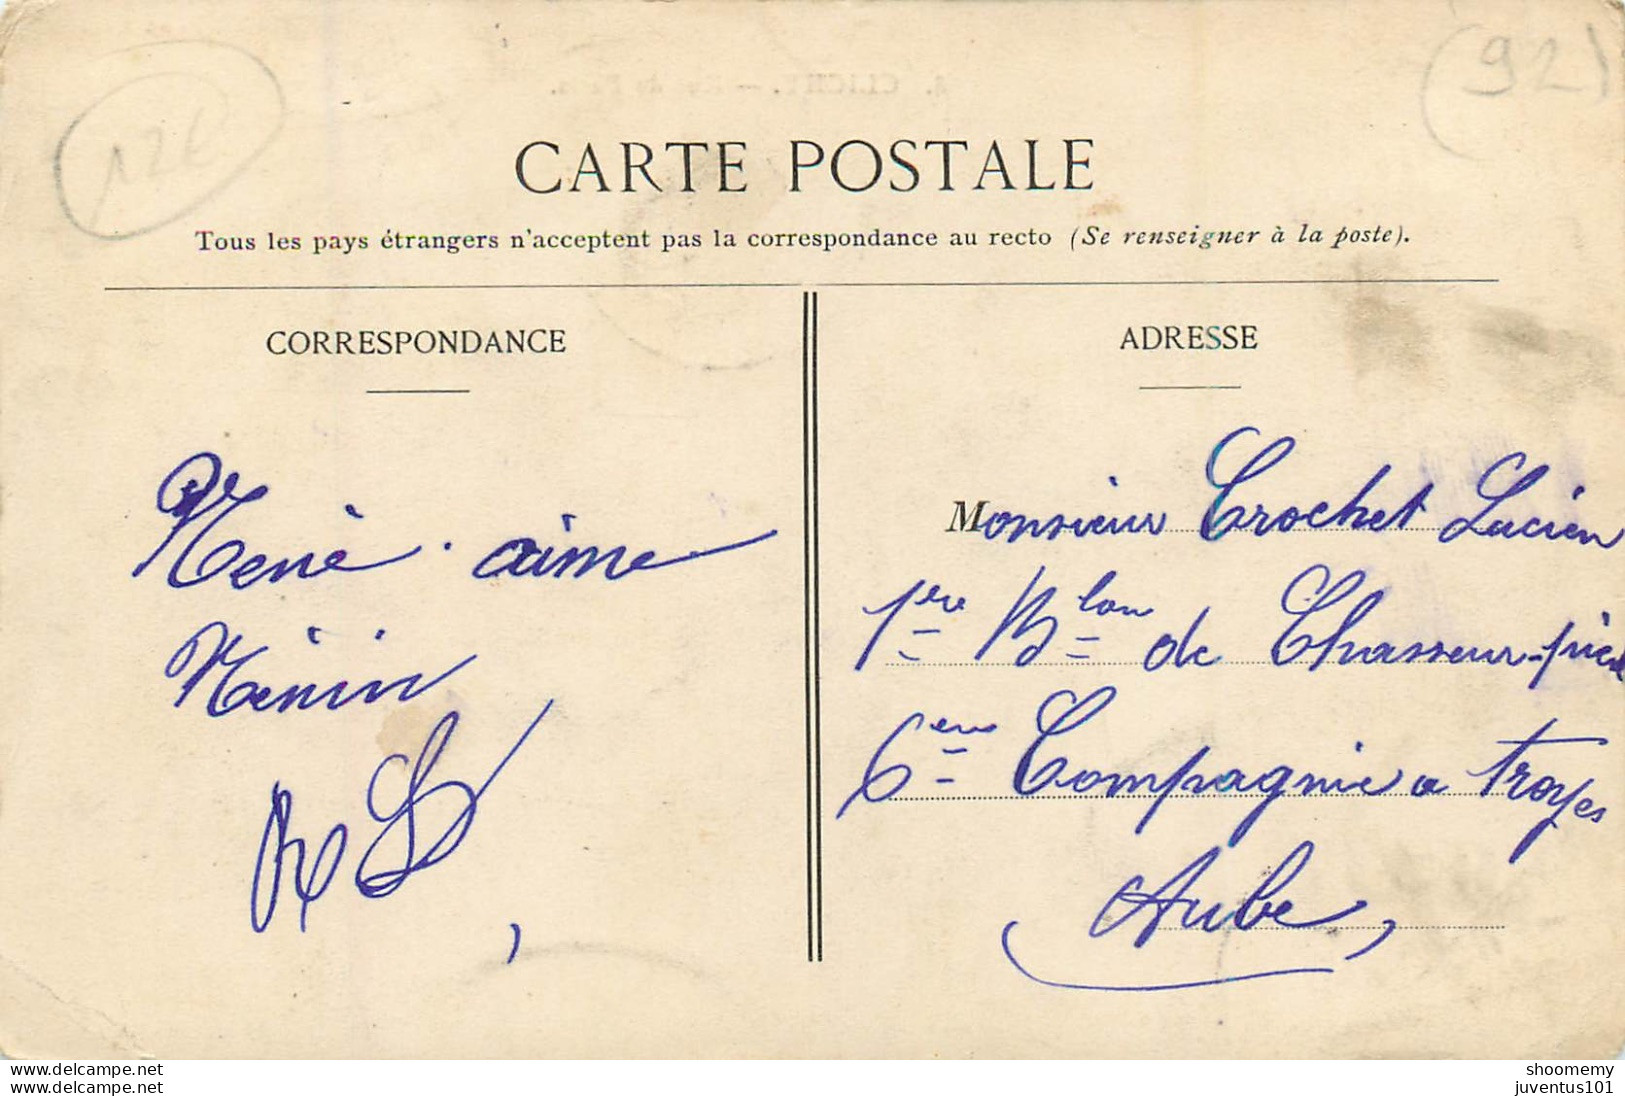 (92)
CARTE POSTALE
Tous les pays étrangers n'acceptent pas la correspondance au recto (Se renseigner à la poste).
CORRESPONDANCE
Nenè. aime
Ninin
ADRESSE
Monsieur Crochet Lucien
1ere Blon de Chasseur-pied
6em Compagnie a Troyes
Aube,
shoomemy
juventus101